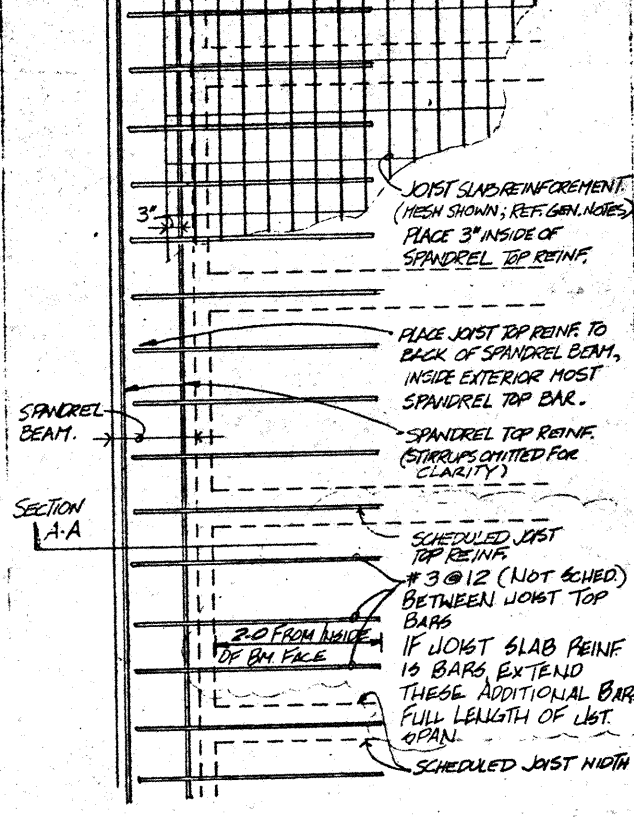 JOIST SLAB REINFOREMENT.
(MESH SHOWN; REF. GEN. NOTES)
PLACE 3" INSIDE OF
SPANDREL TOP REINF.
3"
PLACE JOIST TOP REINF. TO
BACK OF SPANDREL BEAM,
INSIDE EXTERIOR MOST
SPANDREL TOP BAR.
SPANDREL
BEAM.
SPANDREL TOP REINF.
(STIRRUPS OMITTED FOR
CLARITY)
SECTION
A-A
SCHEDULED JOIST
TOP REINF.
#3@12 (NOT SCHED.)
BETWEEN JOIST TOP
BARS
2-0 FROM INSIDE
OF BM. FACE
IF JOIST SLAB REINF
IS BARS, EXTEND
THESE ADDITIONAL BAR
FULL LENGTH OF JST.
SPAN.
SCHEDULED JOIST WIDTH